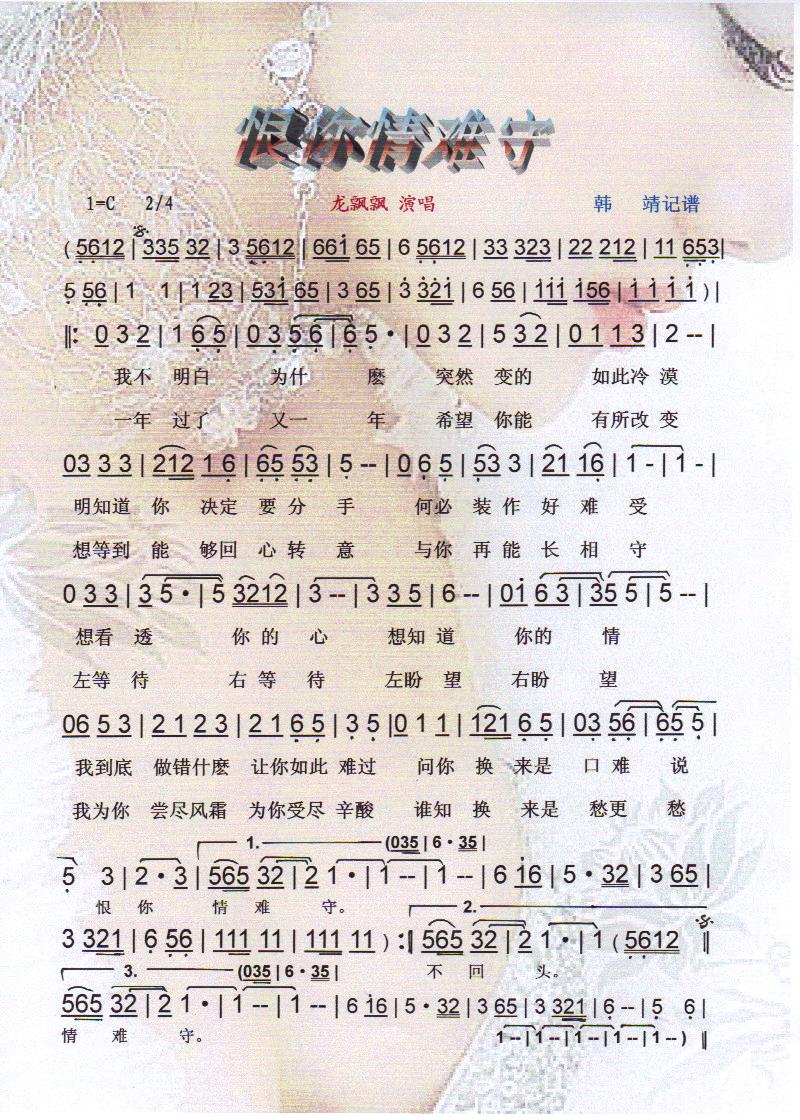 恨你情难守
1=C 2/4 龙飘飘 演唱 韩 靖记谱
( 5612 | 335 32 | 3 5612 | 661 65 | 6 5612 | 33 323 | 22 212 | 11 653 |
5 56 | 1 1 | 1 23 | 531 65 | 3 65 | 3 321 | 6 56 | 111 156 | 1 1 1 1 ) |
‖: 0 3 2 | 1 6 5 | 0 3 5 6 | 6 5 · | 0 3 2 | 5 3 2 | 0 1 1 3 | 2 -- |
我不 明白 为什 麽 突然 变的 如此冷 漠
一年 过了 又一 年 希望 你能 有所改 变
03 3 3 | 212 1 6 | 65 53 | 5 -- | 0 6 5 | 53 3 | 21 16 | 1 - | 1 - |
明知道 你 决定 要 分 手 何必 装 作 好 难 受
想等到 能 够回 心 转 意 与你 再 能 长 相 守
0 3 3 | 3 5 · | 5 3212 | 3 -- | 3 3 5 | 6 -- | 01 6 3 | 35 5 | 5 -- |
想看 透 你 的 心 想知 道 你的 情
左等 待 右 等 待 左盼 望 右盼 望
06 5 3 | 2 1 2 3 | 2 1 6 5 | 3 5 | 0 1 1 | 121 6 5 | 03 56 | 65 5 |
我到底 做错什麽 让你如此 难过 问你 换 来是 口 难 说
我为你 尝尽风霜 为你受尽 辛酸 谁知 换 来是 愁更 愁
1. (035 | 6 · 35 |
5 3 | 2 · 3 | 565 32 | 2 1 · | 1 -- | 1 -- | 6 16 | 5 · 32 | 3 65 |
恨 你 情 难 守。
2.
3 321 | 6 56 | 111 11 | 111 11 ) :‖ 565 32 | 2 1 · | 1 ( 5612 ‖
不 回 头。
3. (035 | 6 · 35 |
565 32 | 2 1 · | 1 -- | 1 -- | 6 16 | 5 · 32 | 3 65 | 3 321 | 6 -- | 5 6 |
情 难 守。
1 -- | 1 -- | 1 -- | 1 -- | 1 -- | 1 -- ) ‖